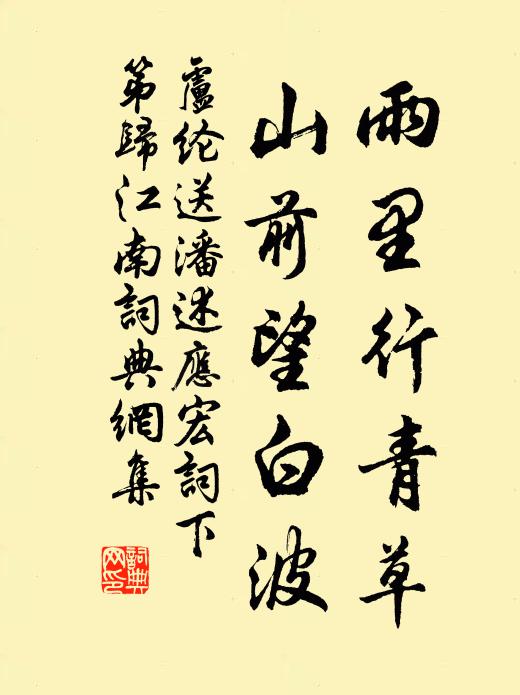 雨里行青草
山前望白波
盧纶送潘述應宏詞下
第歸江南詞典網集
詞典
网印